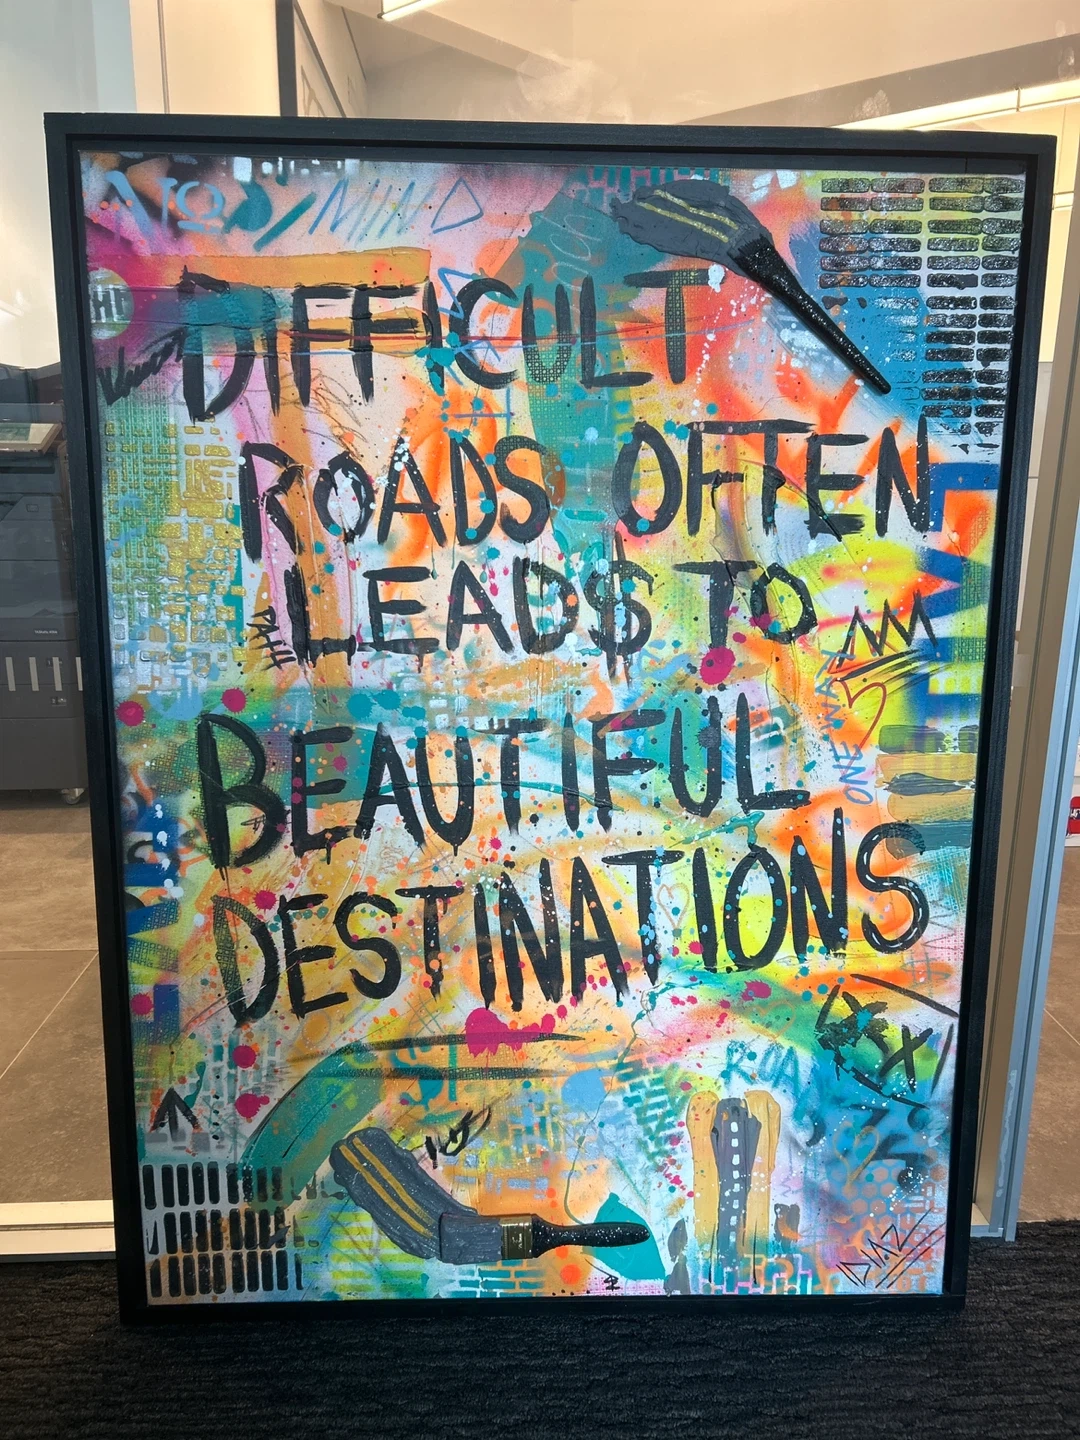 MIND
DIFFICULT
ROADS OFTEN
LEAD$ TO
BEAUTIFUL
DESTINATIONS
ONE WAY
DIAZ